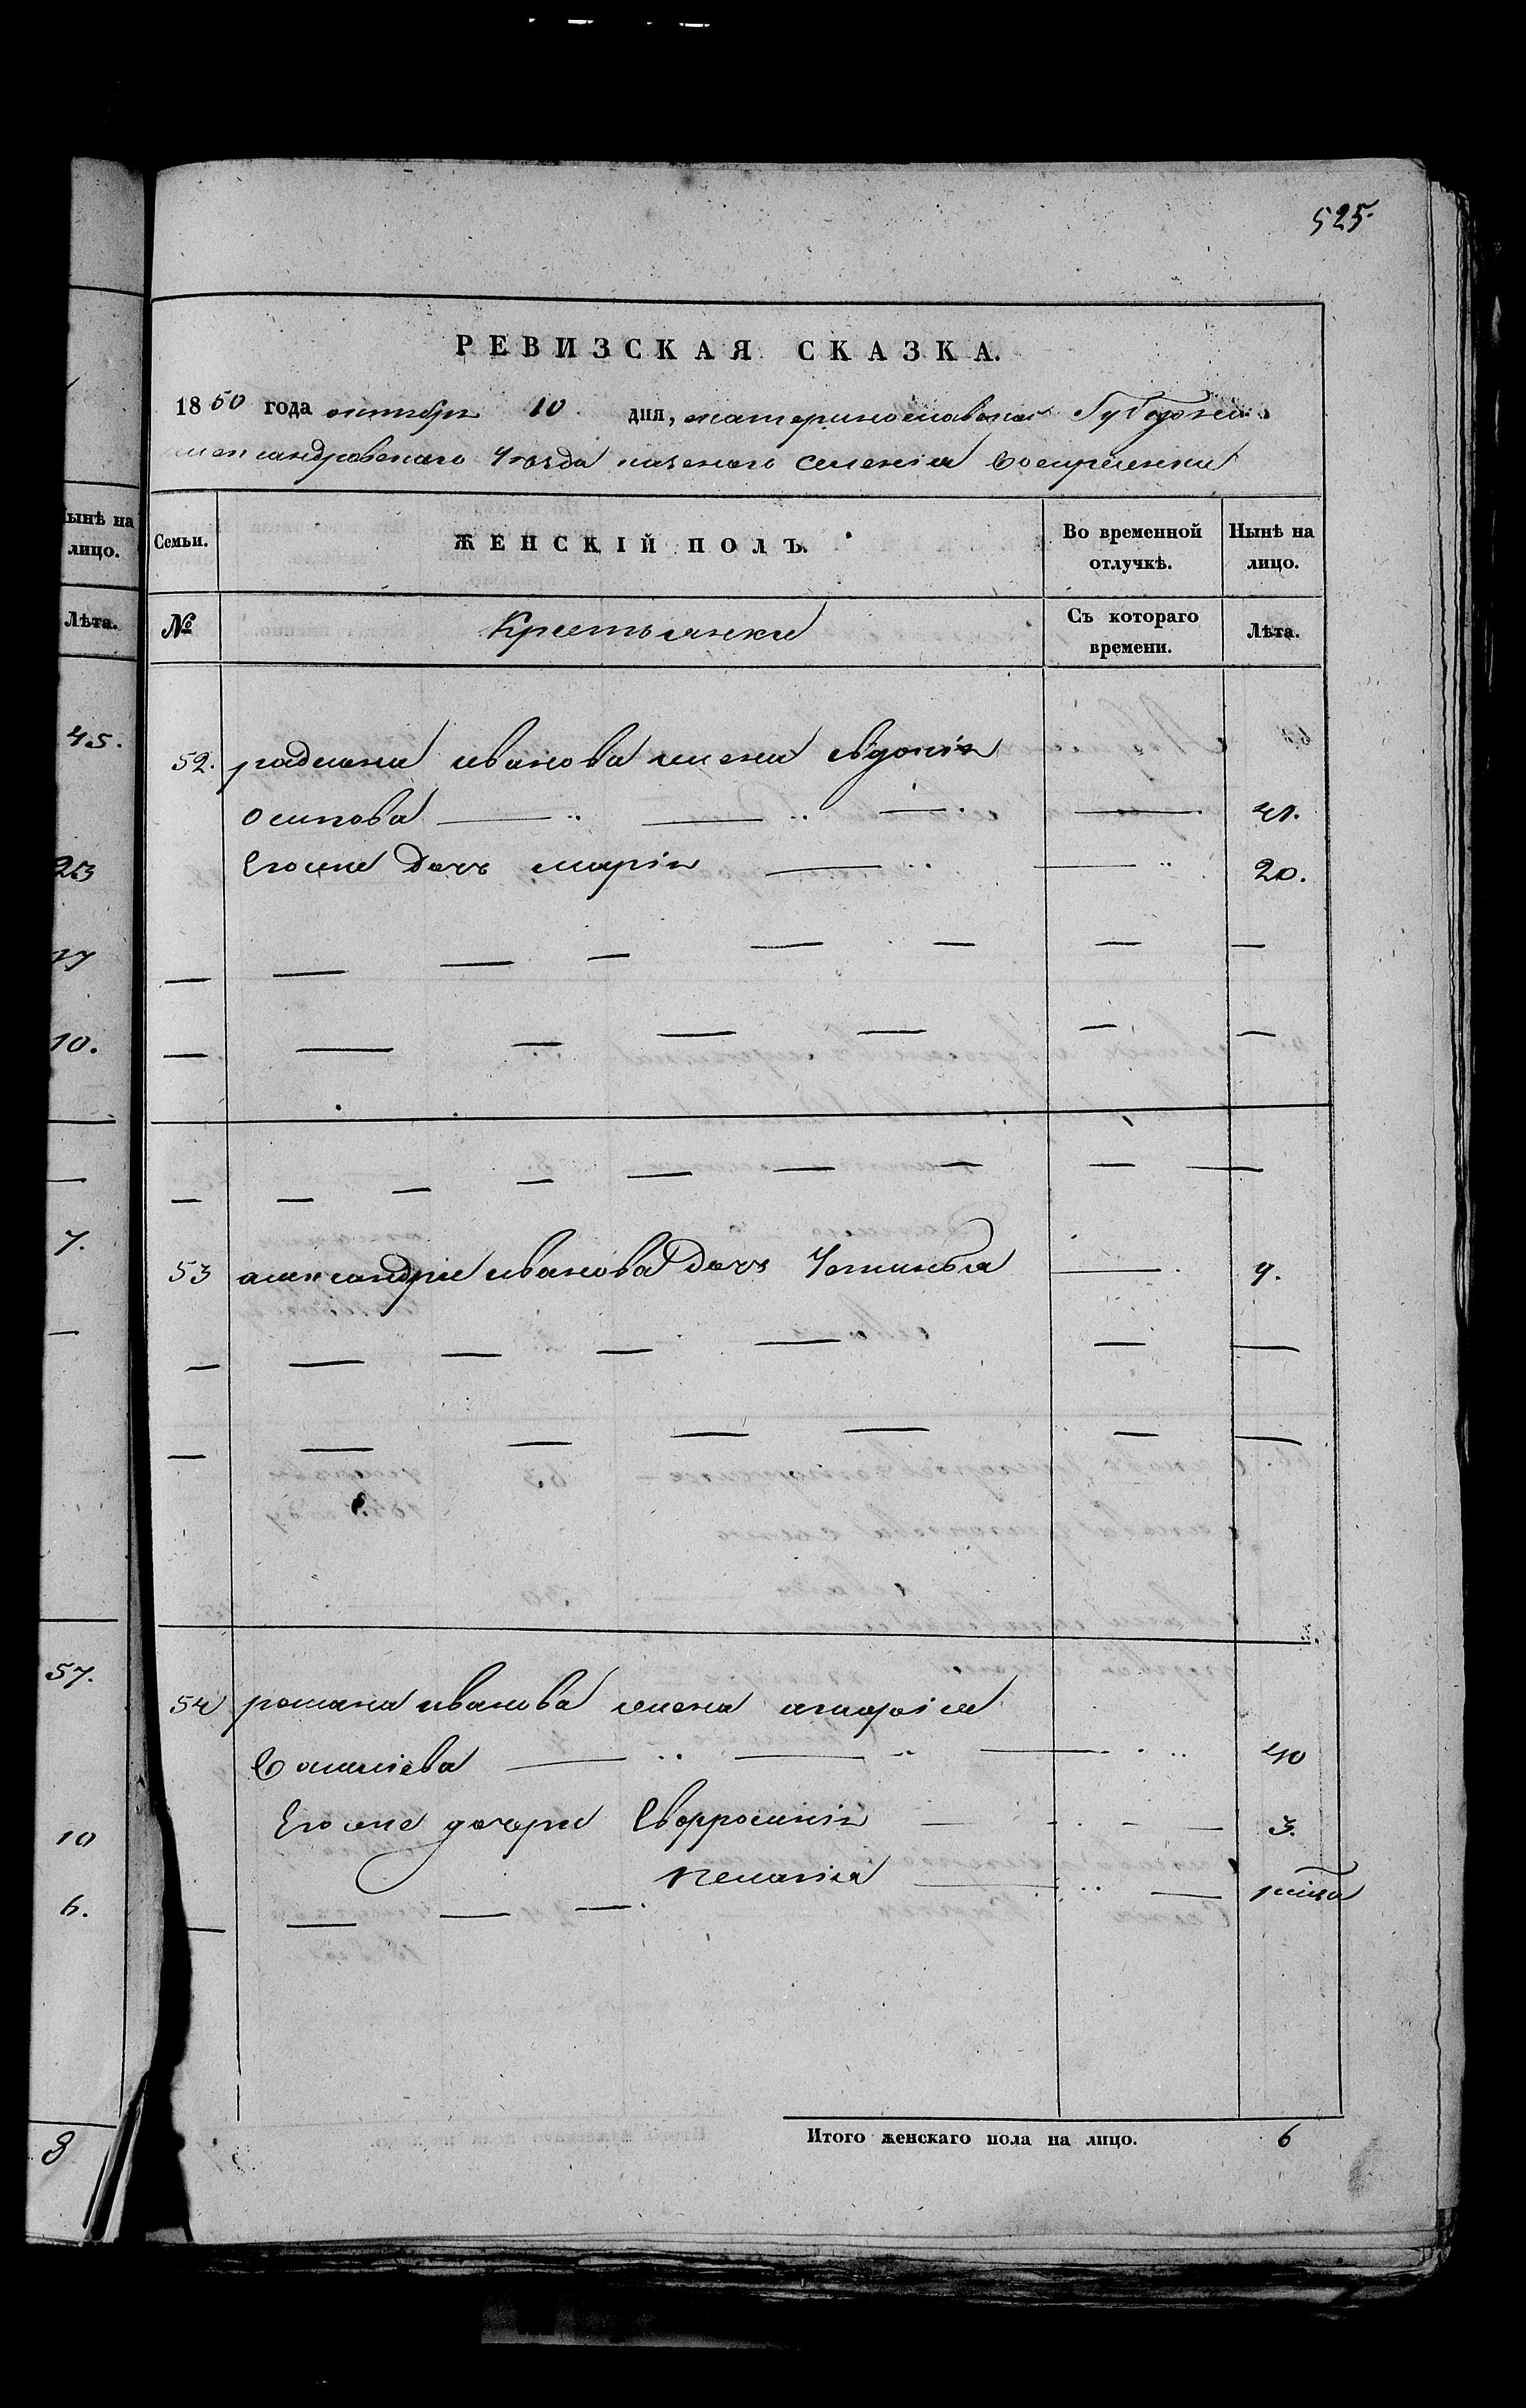 525.
РЕВИЗСКАЯ СКАЗКА.
1850 года октября 10 дня, екатеринославской Губернии
александровского Уезда казеного селения
Семьи. ЖЕНСКІЙ ПОЛЪ. Во временной отлучкѣ. Нынѣ на лицо.
№ Крестьянки Съ котораго времени. Лѣта.
52. иванова жена Євдокія
осипова 41.
Егоже дочь марія 20.
53 александра иванова дочь Устинья 9.
54 романа иванова жена
40
Егоже дочери Евфросинія 3.
пелагия
Итого женскаго пола на лицо. 6
Нынѣ на
лицо.
Лѣта.
45.
23
17
10.
7.
57.
10
6.
8